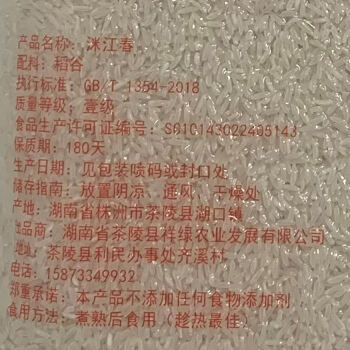 产品名称：洣江春
配料：稻谷
执行标准：GB/T 1354-2018
质量等级：壹级
食品生产许可证编号：SC10143022405143
保质期：180天
生产日期：见包装喷码或封口处
储存指南：放置阴凉、通风、干燥处
产地：湖南省株洲市茶陵县湖口镇
出品商：湖南省茶陵县祥绿农业发展有限公司
地址：茶陵县利民办事处齐溪村
电话：15873349932
郑重承诺：本产品不添加任何食物添加剂
食用方法：煮熟后食用（趁热最佳）